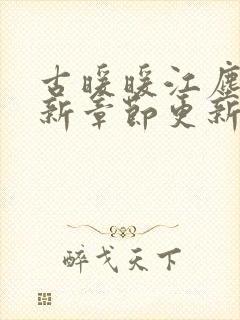 古暖暖江尘
新章节更新
醉戈天下